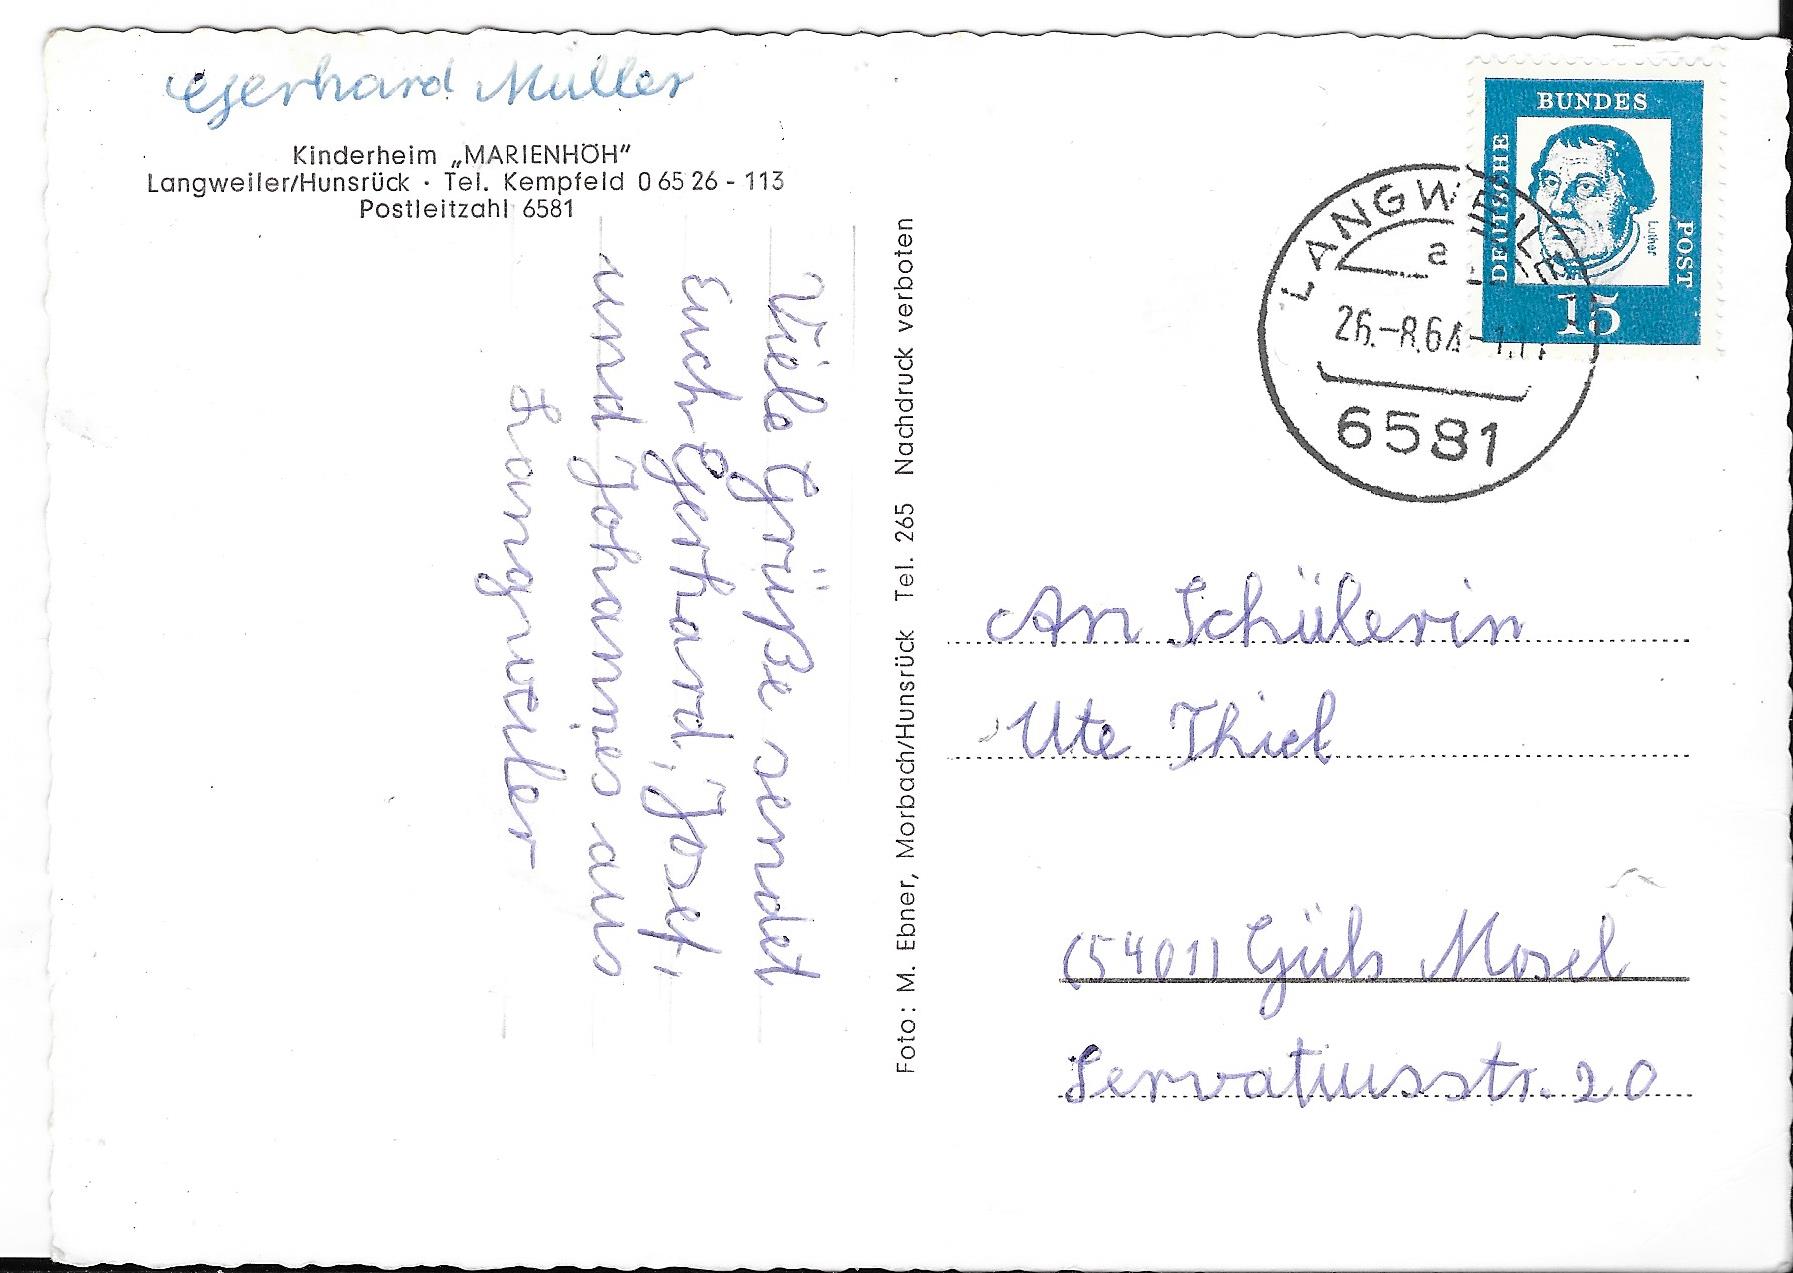 Gerhard Müller
Kinderheim „MARIENHÖH"
Langweiler/Hunsrück · Tel. Kempfeld 0 65 26 - 113
Postleitzahl 6581
Viele Grüße sendet
Euch Gerhard, Josef,
und Johannes aus
Langweiler
Foto: M. Ebner, Morbach/Hunsrück Tel. 265 Nachdruck verboten
DEUTSCHE
BUNDES
POST
Luther
15
LANGWEILER
a
26.-8.64
6581
An Schülerin
Ute Thiel
(5401) Güls Mosel
Servatiusstr. 20